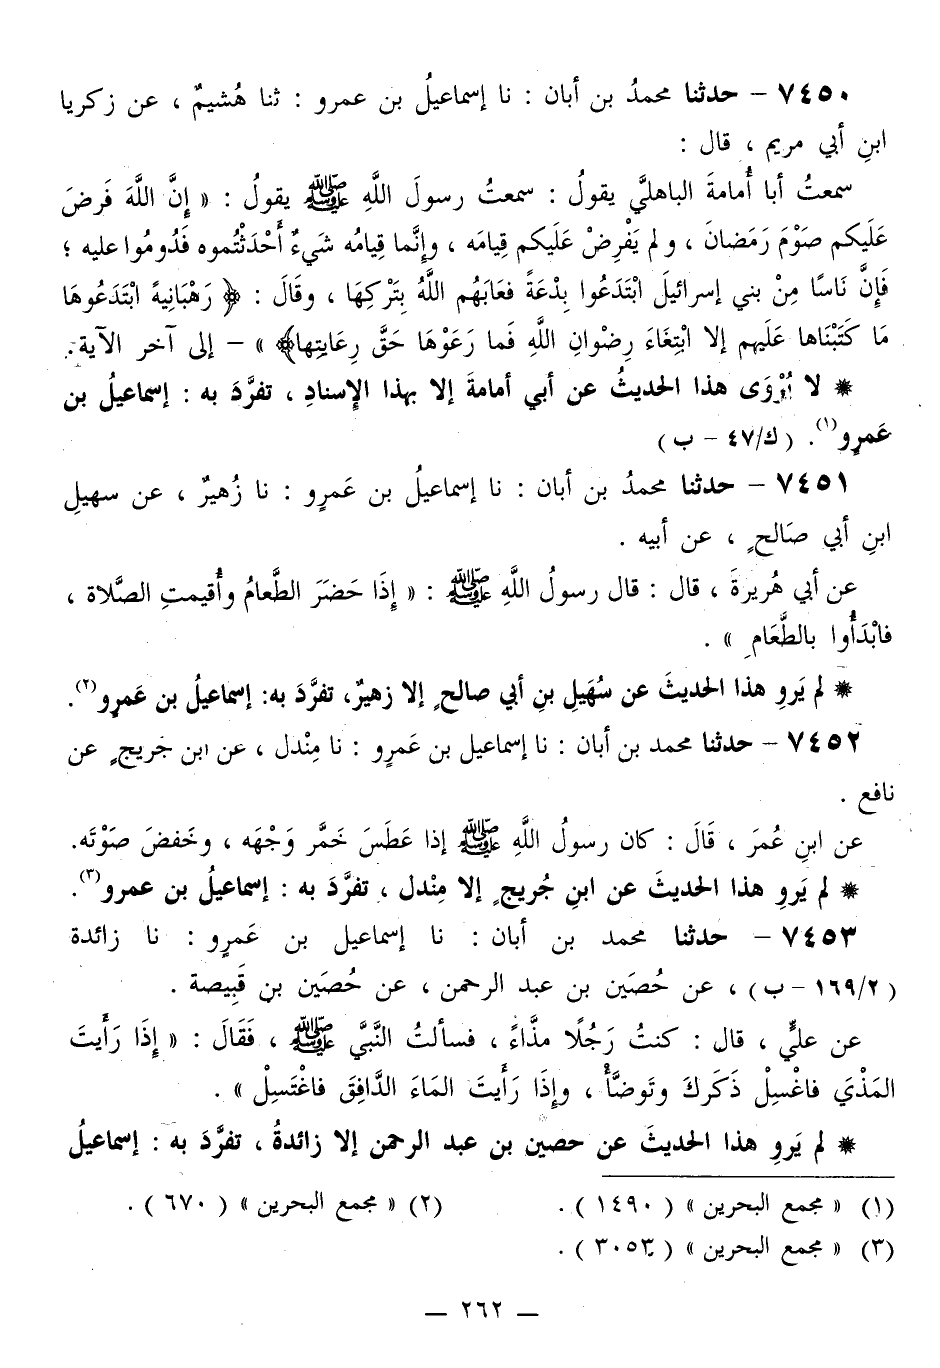 ٧٤٥٠ – حدثنا محمدُ بن أبان : نا إسماعيلُ بن عمرو : ثنا هُشيمٌ ، عن زكريا
ابنِ أبي مريم ، قال :
سمعتُ أبا أُمامةَ الباهليَّ يقولُ : سمعتُ رسولَ اللَّهِ ﷺ يقولُ : « إِنَّ اللَّهَ فَرضَ
عَلَيكم صَوْمَ رَمَضانَ ، ولم يَفْرِضْ عَلَيكم قِيامَه ، وإِنَّما قِيامُه شَيءٌ أَحْدَثْتُموه فَدُومُوا عليه ؛
فَإِنَّ نَاسًا مِنْ بني إسرائيلَ ابْتَدَعُوا بِدْعَةً فعَابَهُم اللَّهُ بِتَرْكِهَا ، وقَالَ : ﴿ رَهْبَانِيةً ابْتَدَعُوهَا
مَا كَتَبْنَاها عَلَيهم إلا ابْتِغَاءَ رِضْوانِ اللَّهِ فَما رَعَوْهَا حَقَّ رِعَايتِها﴾ » – إلى آخر الآية.
* لا يُرْوَى هذا الحديثُ عن أبي أمامةَ إلا بهذا الإسنادِ ، تفرَّدَ به : إسماعيلُ بن
عَمرٍو(١). ( ك/٤٧ – ب )
٧٤٥١ – حدثنا محمدُ بن أبان : نا إسماعيلُ بن عَمرٍو : نا زُهيرٌ ، عن سهيلِ
ابنِ أبي صَالحٍ ، عن أبيه .
عن أبي هُريرةَ ، قال : قال رسولُ اللَّهِ ﷺ : « إِذَا حَضَرَ الطَّعامُ وأُقيمتِ الصَّلاة ،
فابْدَأُوا بالطَّعَامِ » .
* لم يَروِ هذا الحديثَ عن سُهَيلِ بنِ أبي صالحٍ إلا زهيرٌ، تفرَّدَ به: إسماعيلُ بن عَمرٍو(٢).
٧٤٥٢ – حدثنا محمد بن أبان : نا إسماعيل بن عَمرٍو : نا مِنْدل ، عن ابن جُريجٍ عن
نافع .
عن ابنِ عُمرَ ، قَالَ : كان رسولُ اللَّهِ ﷺ إذا عَطَسَ خَمَّر وَجْهَه ، وخَفضَ صَوْتَه.
* لم يَروِ هذا الحديثَ عن ابنِ جُريجٍ إلا مِنْدل ، تفرَّدَ به : إسماعيلُ بن عمرو(٣).
٧٤٥٣ – حدثنا محمد بن أبان : نا إسماعيل بن عَمرٍو : نا زائدة
( ١٦٩/٢ – ب ) ، عن حُصَين بن عبد الرحمن ، عن حُصَين بنِ قَبِيصة .
عن عليٍّ ، قال : كنتُ رَجُلًا مذَّاءً ، فسألتُ النَّبيَّ ﷺ ، فَقَالَ : « إِذَا رَأَيتَ
المَذْيَ فاغْسِلْ ذَكَركَ وتَوضَّأْ ، وإِذَا رَأَيتَ المَاءَ الدَّافِقَ فاغْتَسِلْ » .
* لم يَروِ هذا الحديثَ عن حصين بن عبد الرحمن إلا زائدةُ ، تفرَّدَ به : إسماعيلُ
(١) « مجمع البحرين » ( ١٤٩٠ ) . (٢) « مجمع البحرين » ( ٦٧٠ ) .
(٣) « مجمع البحرين » ( ٣٠٥٣ ) .
– ٢٦٢ –